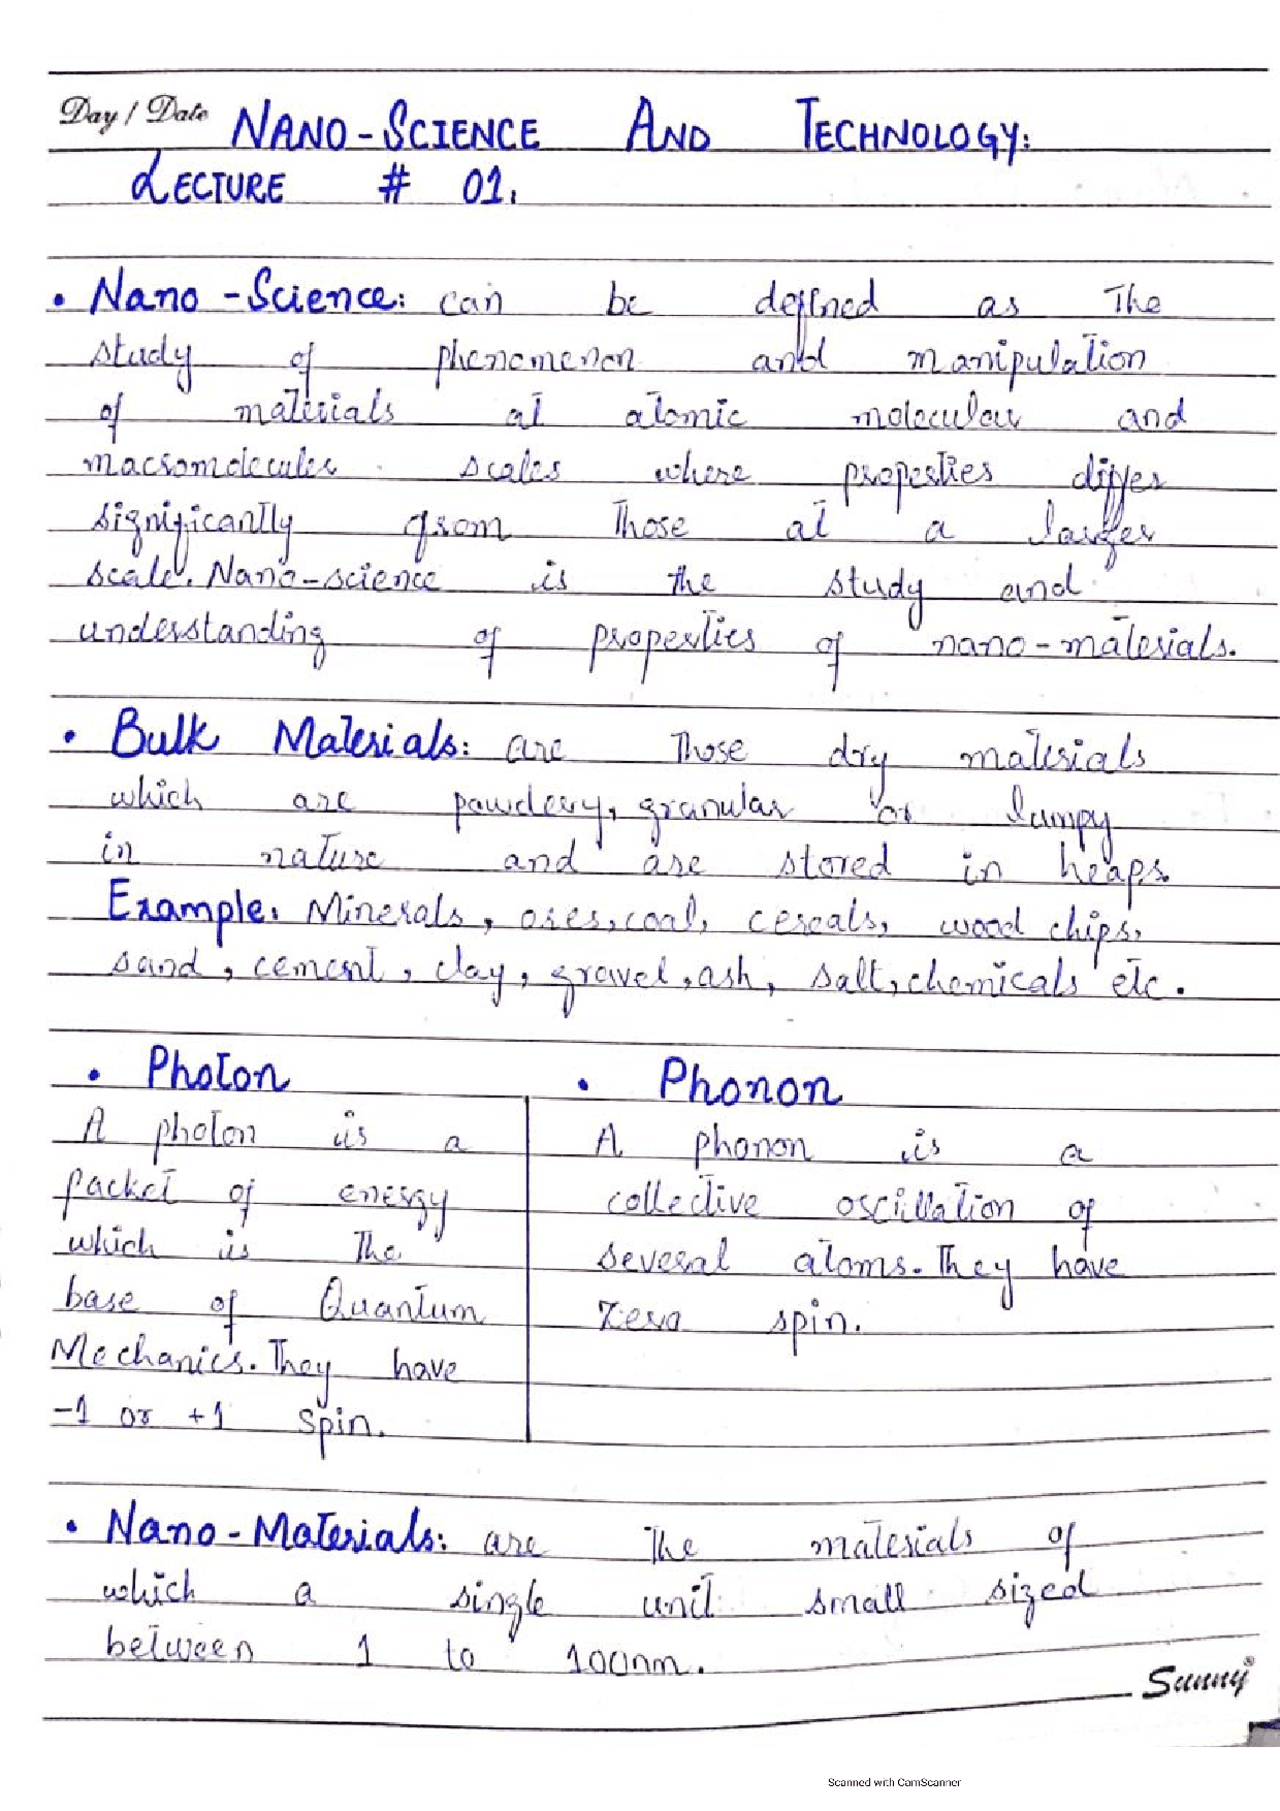 Day / Date NANO-SCIENCE AND TECHNOLOGY:
LECTURE # 01.
• Nano-Science: can be defined as the
study of phenomenon and manipulation
of materials at atomic molecular and
macromolecules scales where properties differ
significantly from those at a larger
scale. Nano-science is the study and
understanding of properties of nano-materials.
• Bulk Materials: are those dry materials
which are powdery, granular or lumpy
in nature and are stored in heaps.
Example: Minerals, ores, coal, cereals, wood chips,
sand, cement, clay, gravel, ash, salt, chemicals etc.
• Photon
A photon is a
packet of energy
which is the
base of Quantum
Mechanics. They have
-1 or +1 spin.
• Phonon
A phonon is a
collective oscillation of
several atoms. They have
zero spin.
• Nano-Materials: are the materials of
which a single unit small sized
between 1 to 100nm.
Sunny®
Scanned with CamScanner